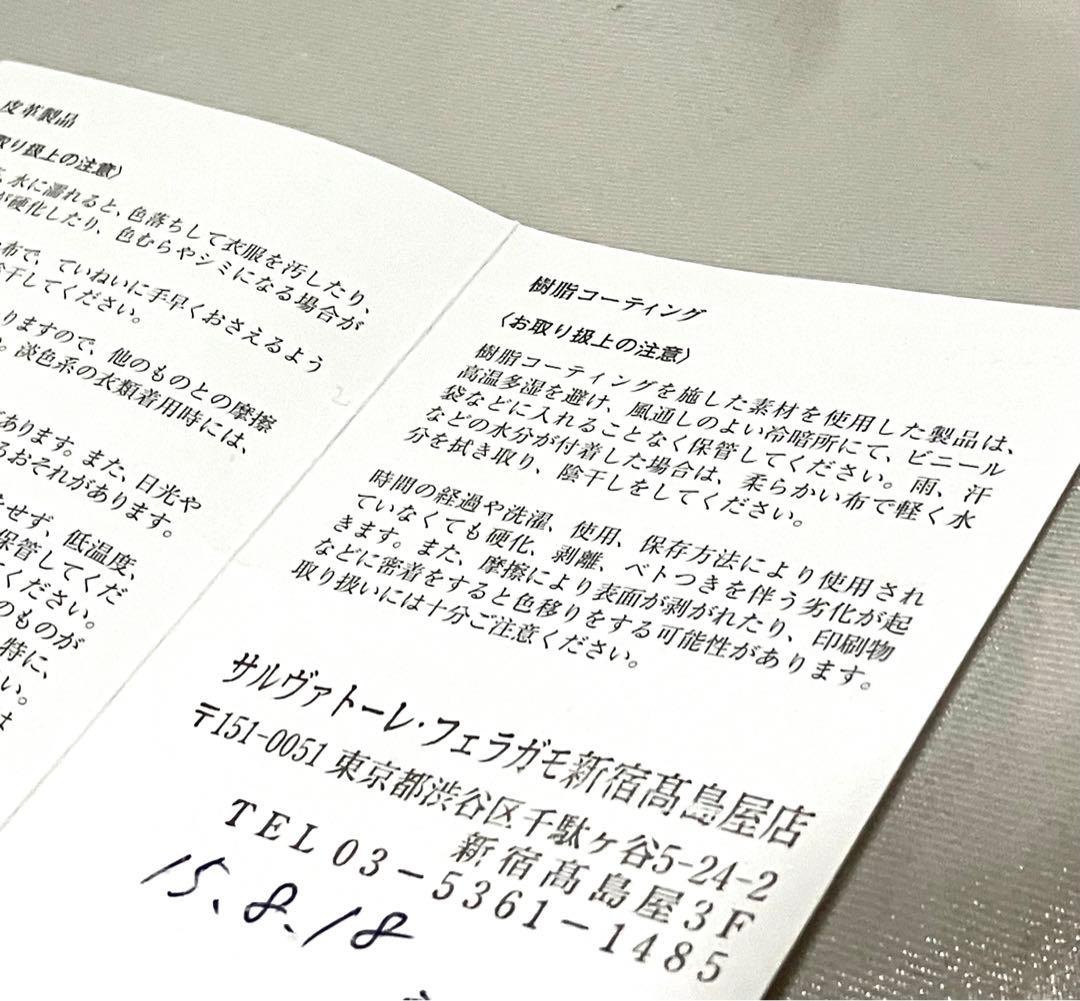 皮革製品
取り扱上の注意〉
水に濡れると、色落ちして衣服を汚したり、
が硬化したり、色むらやシミになる場合が
布で、ていねいに手早くおさえるよう
陰干してください。
りますので、他のものとの摩擦
。淡色系の衣類着用時には、
あります。また、日光や
るおそれがあります。
せず、低温度、
保管してくだ
ください。
のものが
特に、
い。
は
樹脂コーティング
〈お取り扱上の注意〉
樹脂コーティングを施した素材を使用した製品は、
高温多湿を避け、風通しのよい冷暗所にて、ビニール
袋などに入れることなく保管してください。雨、汗
などの水分が付着した場合は、柔らかい布で軽く水
分を拭き取り、陰干しをしてください。
時間の経過や洗濯、使用、保存方法により使用され
ていなくても硬化、剥離、ベトつきを伴う劣化が起
きます。また、摩擦により表面が剥がれたり、印刷物
などに密着をすると色移りをする可能性があります。
取り扱いには十分ご注意ください。
サルヴァトーレ・フェラガモ新宿髙島屋店
〒151-0051 東京都渋谷区千駄ヶ谷5-24-2
新宿髙島屋3F
TEL 03-5361-1485
15.8.18